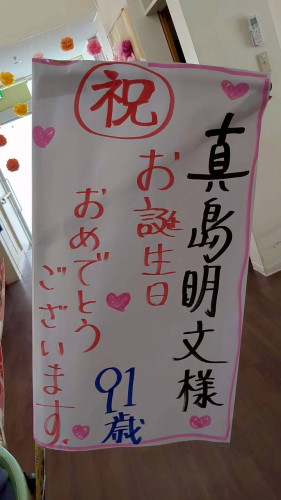 真島明文様
祝
お誕生日
おめでとう
ございます。
91歳